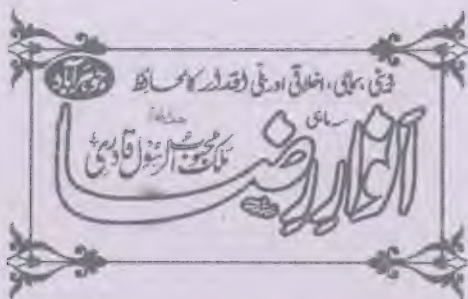 دینی، سماجی، اخلاقی اور ملی اقدار کا محافظ
جوہرآباد
سہ ماہی
انوارِ رضا
ملک محبوب الرسول قادری